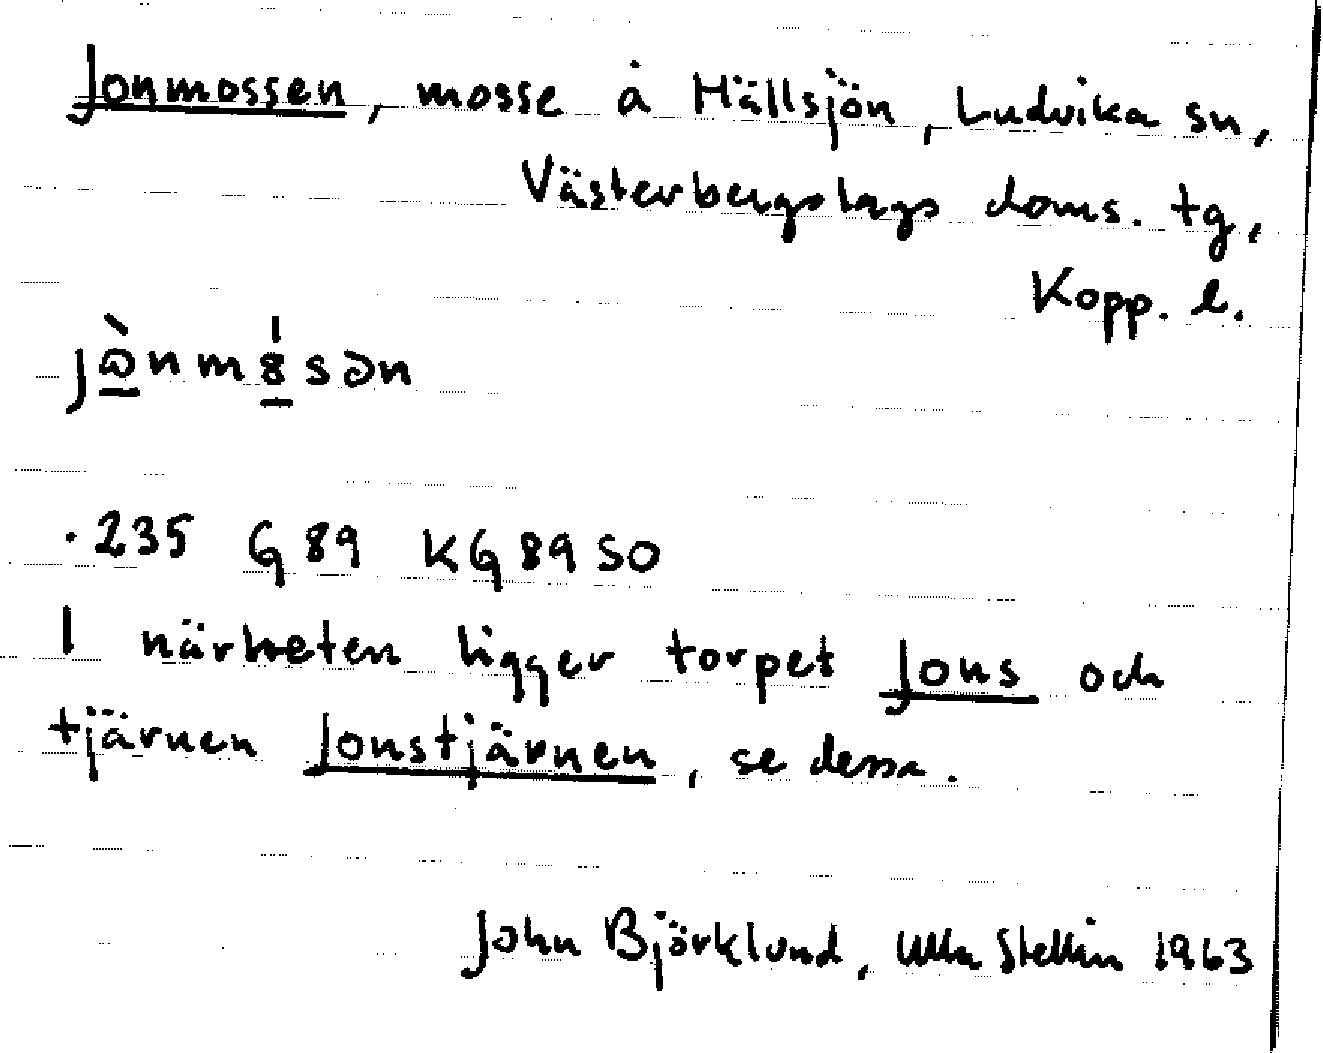 Jonmossen, mosse å Hällsjön, Ludvika sn,
Västerbergslags doms. tg,
Kopp. l.
.235 G 89 KG 89 SO
I närheten ligger torpet Jons och
tjärnen Jonstjärnen, se dessa.
John Björklund, Ulla Stellin 1963